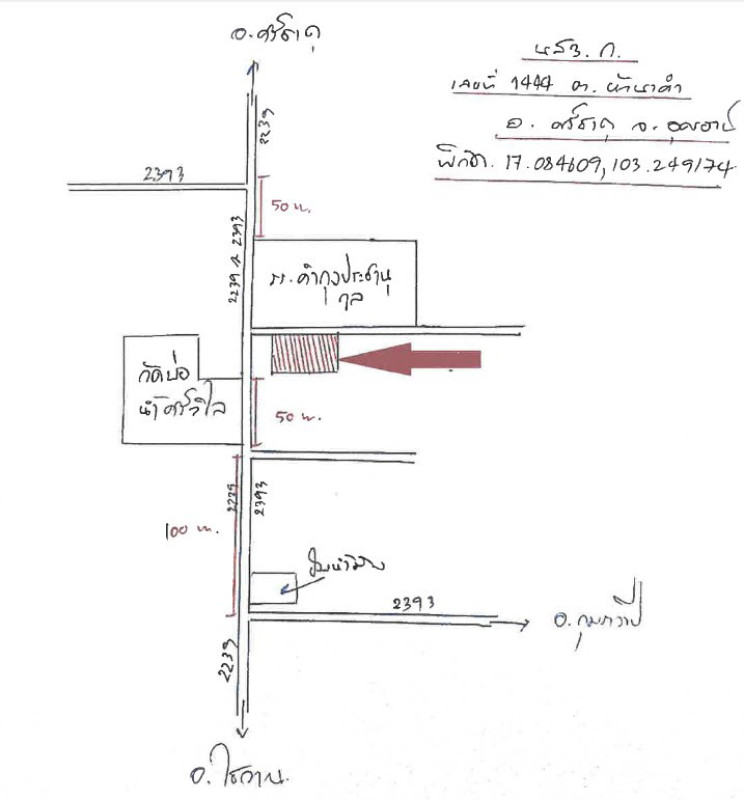 อ.ศรีธาตุ
นส3. ก.
เลขที่ 1444 ต. บ้านาคำ
อ. ศรีธาตุ จ. อุดรธานี
พิกัด. 17.084609, 103.249174
2239
2393
50 ม.
2239 ก 2393
รร.คำกุงประชานุ
กูล
วัดบ่อ
น้ำศรีวิไล
50 ม.
2239
2393
100 ม.
ปั๊มน้ำมัน
2393
อ.กุมภวาปี
2239
อ.ไชวาน.